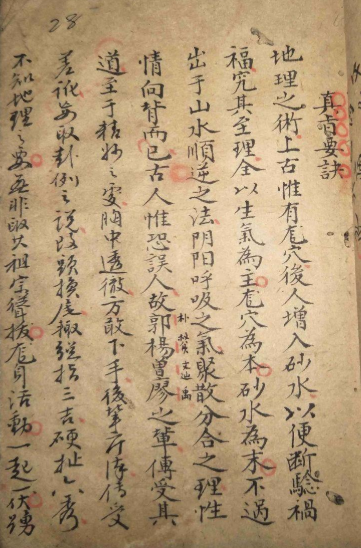 28
真旨要訣
地理之術上古惟有龍穴後人增入砂水以便斷驗禍
福究其至理全以生氣為主龍穴為本砂水為末不過
出于山水順逆之法阴阳呼吸之氣聚散分合之理性
情向背而已古人惟恐誤人故郭楊曽廖之輩傳受其
朴 贊 文迪 禹
道至于精妙之處胸中透徹方敢下手後輩傳受
差訛妄取卦例之說改頭換尾輙強指三吉硬扯六秀
不知地理之要無非取其祖宗聳拔龍身活動一起一伏踴